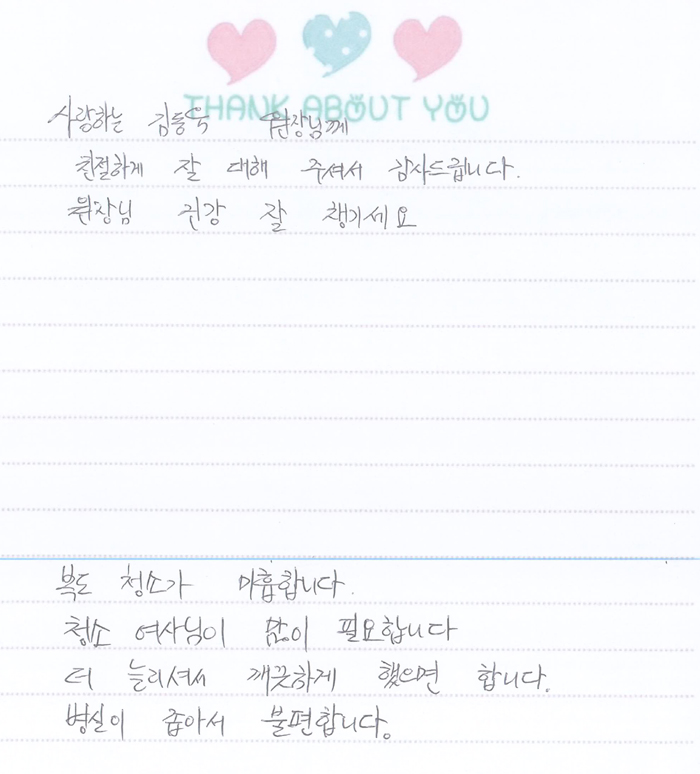 THANK ABOUT YOU
사랑하는 김동욱 원장님께
친절하게 잘 대해 주셔서 감사드립니다.
원장님 건강 잘 챙기세요
복도 청소가 미흡합니다.
청소 여사님이 많이 필요합니다
더 늘리셔서 깨끗하게 했으면 합니다.
병실이 좁아서 불편합니다.